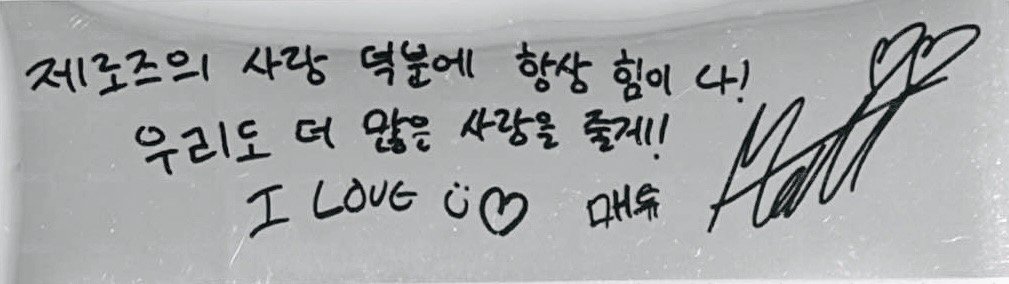 제로즈의 사랑 덕분에 항상 힘이 나!
우리도 더 많은 사랑을 줄게!!
I LOVE Ü♡ 매튜
Matt